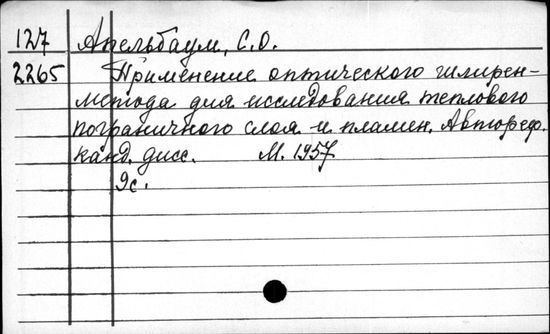 127 Апельбаум, С.О.
2265 Применение оптического шлирен-
метода для исследования теплового
пограничного слоя и пламен. Автореф.
канд. дисс. М. 1957
9с.